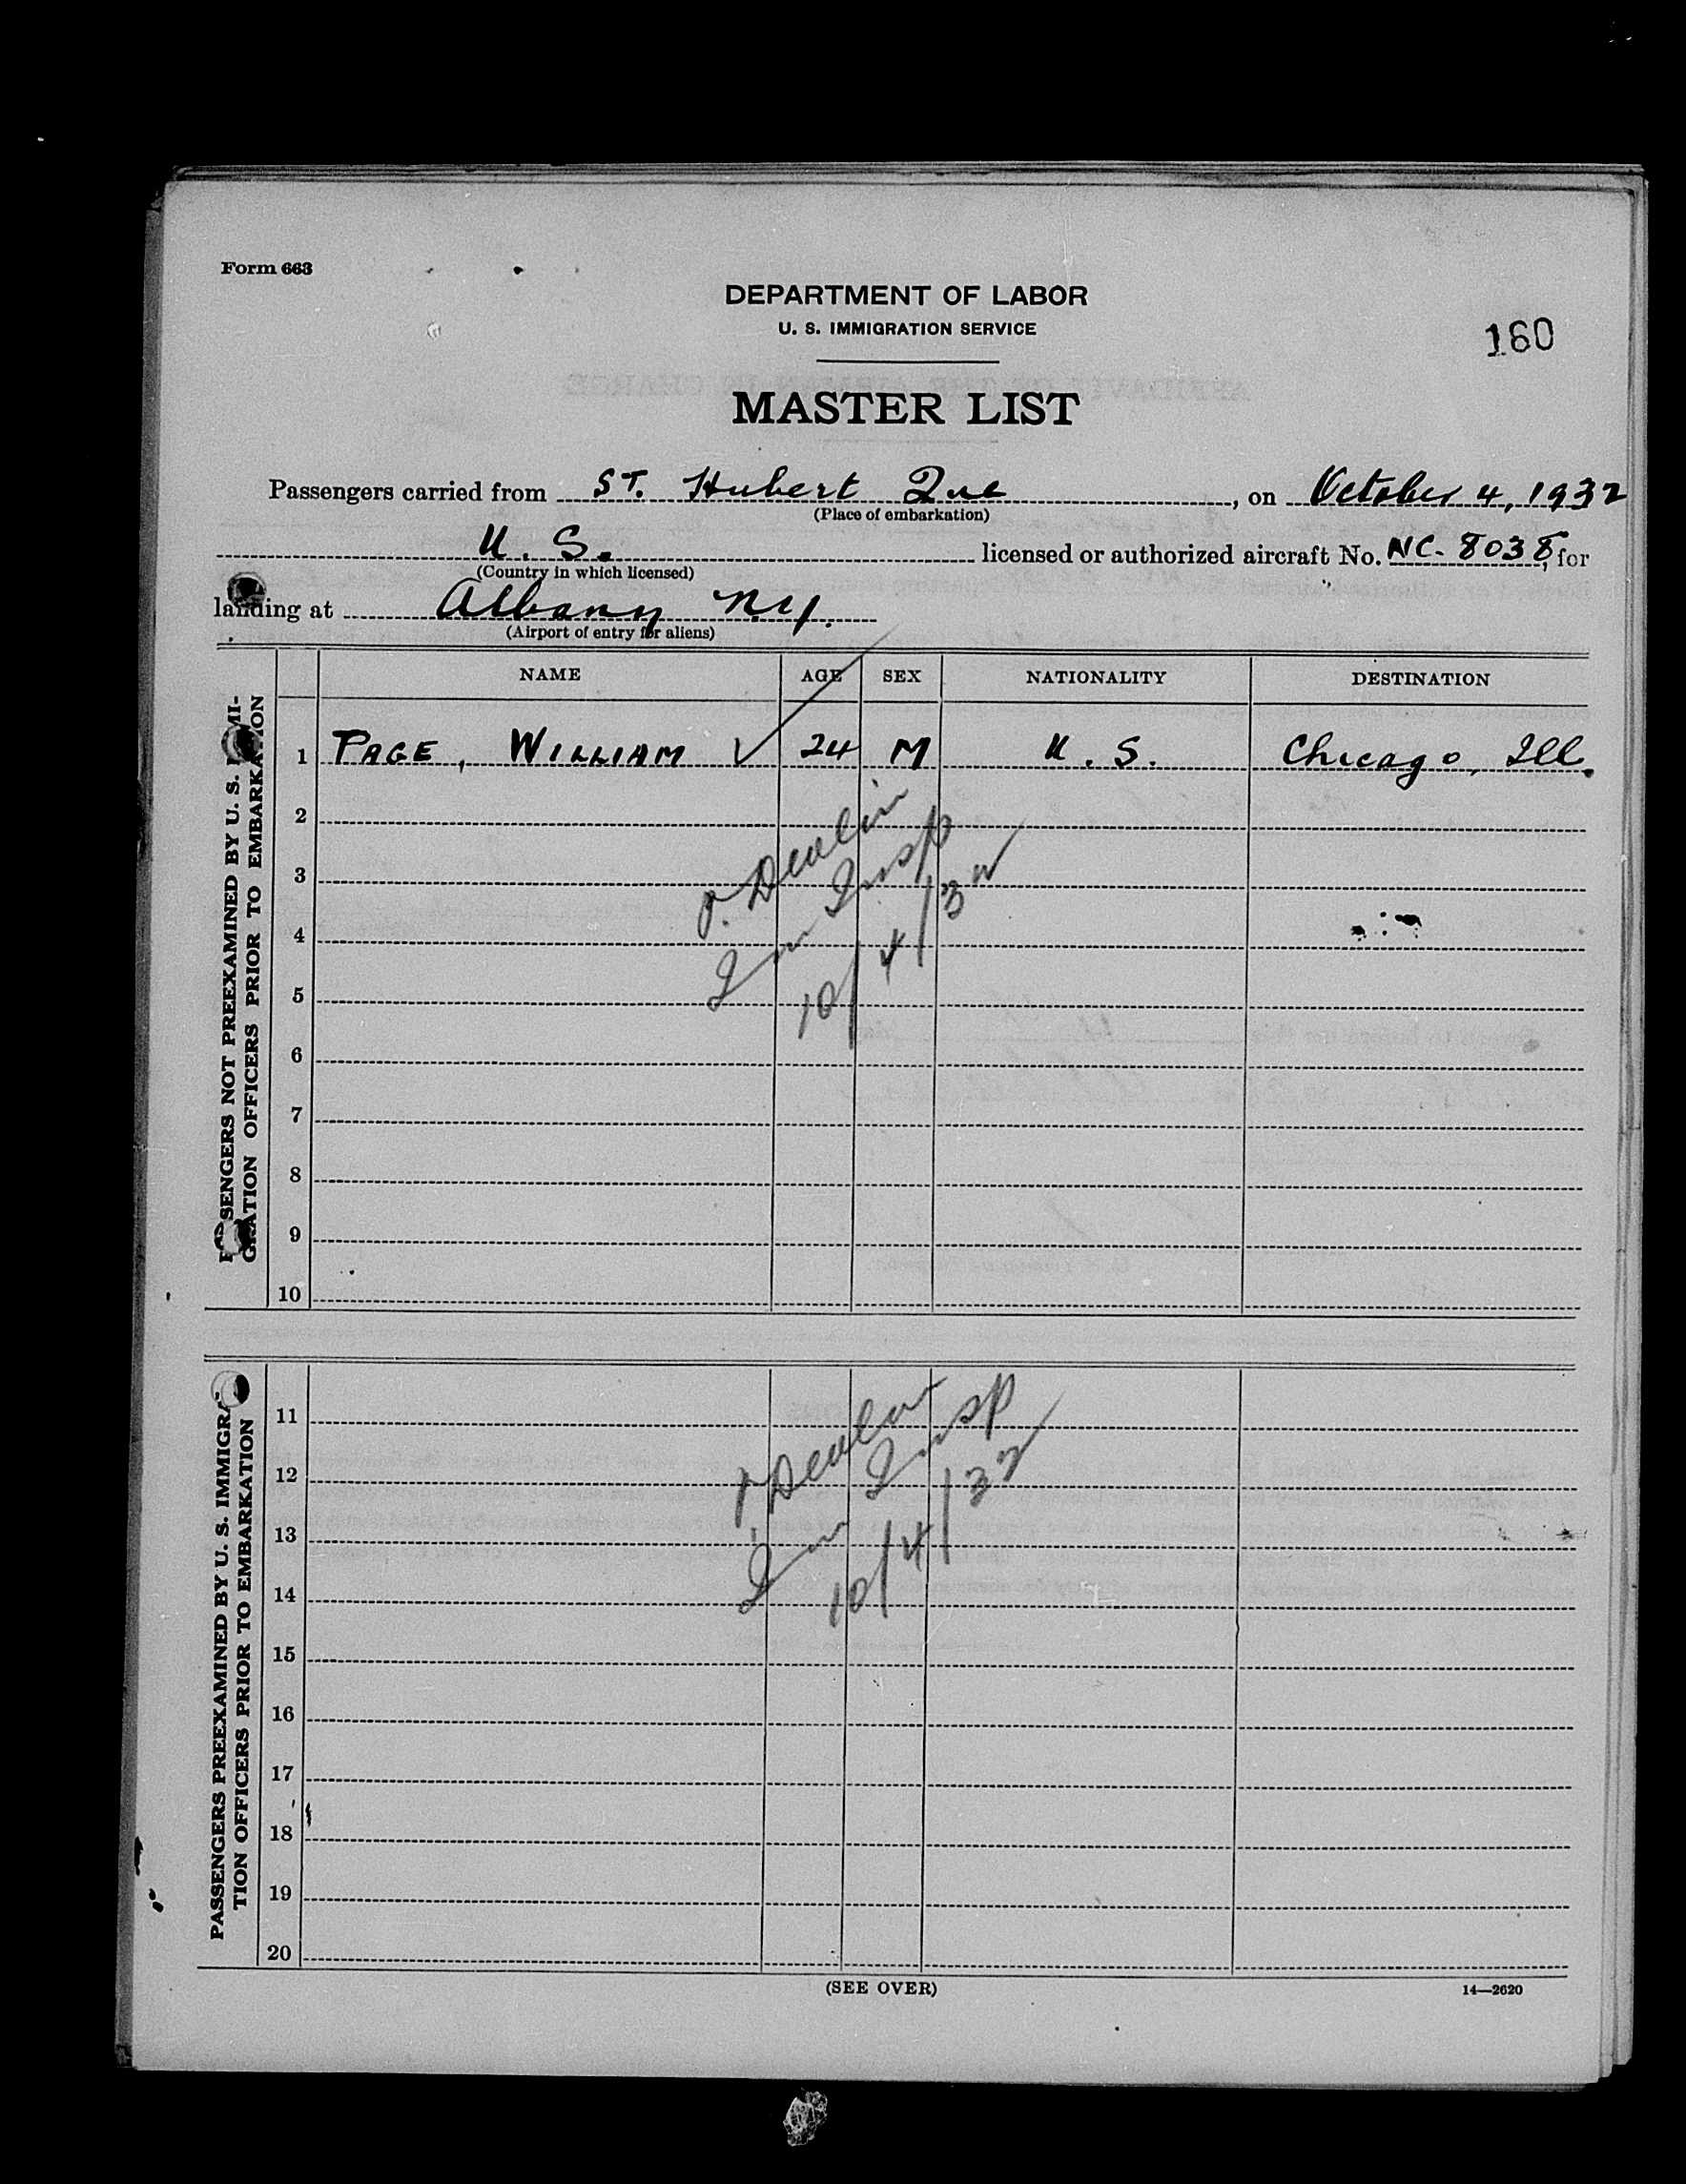 Form 663
DEPARTMENT OF LABOR
U. S. IMMIGRATION SERVICE
160
MASTER LIST
Passengers carried from ST. Hubert Que, on October 4, 1932
(Place of embarkation)
U. S. licensed or authorized aircraft No. NC-8038, for
(Country in which licensed)
landing at Albany N.Y.
(Airport of entry for aliens)
NAME AGE SEX NATIONALITY DESTINATION
PASSENGERS NOT PREEXAMINED BY U. S. IMMI-
GRATION OFFICERS PRIOR TO EMBARKATION
1 PAGE, WILLIAM ✓ 24 M U. S. Chicago, Ill.
2
3
4
5
6
7
8
9
10
Devlin
Imm Insp
10/4/32
PASSENGERS PREEXAMINED BY U. S. IMMIGRA-
TION OFFICERS PRIOR TO EMBARKATION
11
12
13
14
15
16
17
18
19
20
Devlin
Imm Insp
10/4/32
(SEE OVER)
14—2620